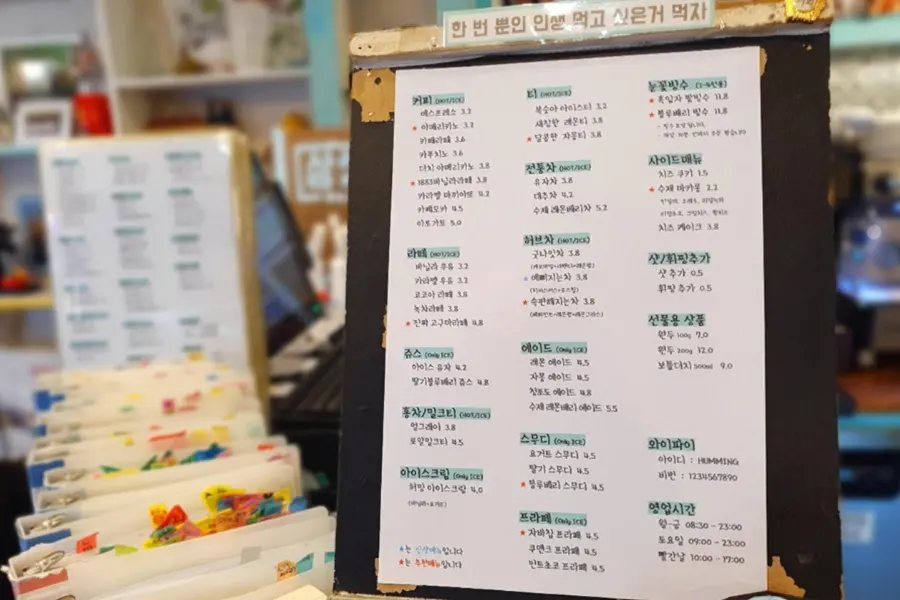 한 번 뿐인 인생 먹고 싶은거 먹자
커피 (HOT/ICE)
에스프레소 3.2
★ 아메리카노 3.2
카페라떼 3.6
카푸치노 3.6
더치 아메리카노 3.8
★ 1883바닐라라떼 3.8
카라멜 마끼아또 4.2
카페모카 4.5
아포가또 5.0
라떼 (HOT/ICE)
바닐라 우유 3.3
카라멜 우유 3.3
코코아 라떼 3.8
녹차라떼 3.8
★ 진짜 고구마라떼 4.8
쥬스 (Only ICE)
아이스 유자 4.2
딸기블루베리 쥬스 4.8
홍차/밀크티 (HOT/ICE)
얼그레이 3.8
로얄밀크티 4.5
아이스크림 (Only ICE)
허밍 아이스크림 4.0
★는 신상메뉴입니다
★는 추천메뉴입니다
티 (HOT/ICE)
복숭아 아이스티 3.2
새침한 레몬티 3.8
★ 달콤한 자몽티 3.8
전통차 (HOT/ICE)
유자차 3.8
대추차 4.2
수제 레몬베리차 5.2
허브차 (HOT/ICE)
굿나잇차 3.8
★ 예뻐지는차 3.8
★ 속편해지는차 3.8
에이드 (Only ICE)
레몬 에이드 4.5
자몽 에이드 4.5
청포도 에이드 4.8
수제 레몬베리 에이드 5.5
스무디 (Only ICE)
요거트 스무디 4.5
딸기 스무디 4.5
★ 블루베리 스무디 4.5
프라페 (Only ICE)
★ 자바칩 프라페 4.5
쿠앤크 프라페 4.5
민트초코 프라페 4.5
눈꽃빙수
★ 흑임자 팥빙수 11.8
★ 블루베리 빙수 11.8
사이드메뉴
치즈 쿠키 1.5
★ 수제 마카롱 2.2
치즈 케이크 3.8
샷/휘핑추가
샷 추가 0.5
휘핑 추가 0.5
선물용 상품
원두 100g 7.0
원두 200g 12.0
보틀더치 500ml 9.0
와이파이
아이디 : HUMMING
비번 : 1234567890
영업시간
월-금 08:30 - 23:00
토요일 09:00 - 23:00
빨간날 10:00 - 19:00